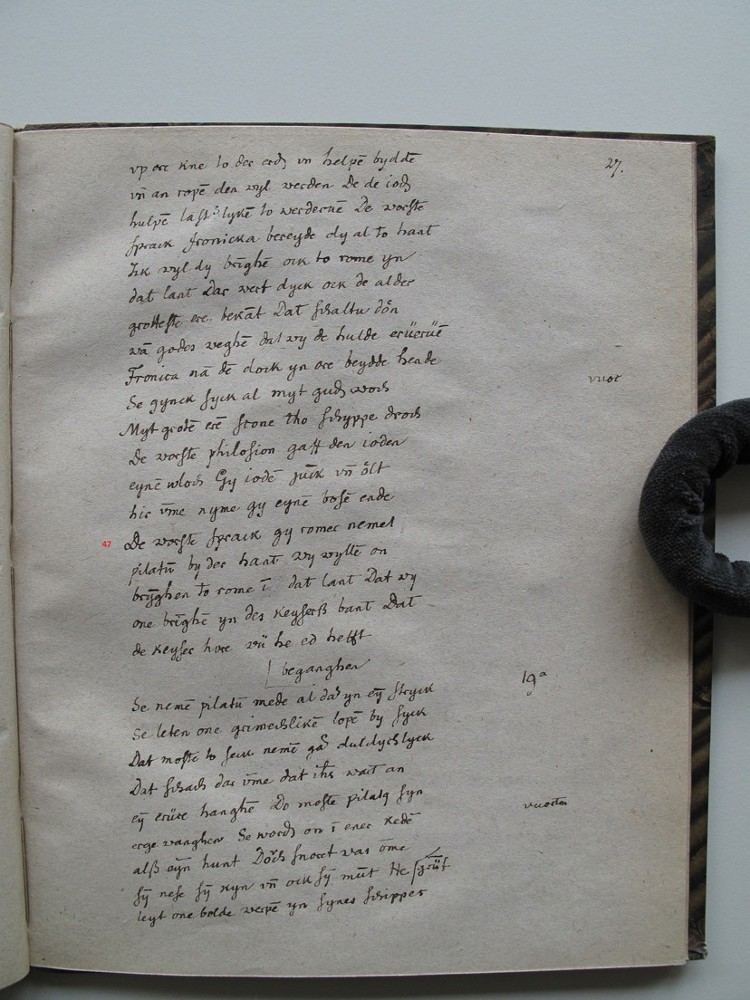 27.
vp ere kne to der erdꝫ vn̄ helpē byddē
vn̄ an ropē den wyl werden De de iodꝫ
hulpē laſt lykē to werderuē De worſte
ſprack fronicka bereyde dy al to hant
Ick wyl dy brīghē ock to rome yn
dat lant Dar wert dyck ock de alder
grotteſte ere bekāt Dat ſchaltu dōn
vā godes weghē dat wy de hulde
Fronica nā dē dock yn ore beydde hende
Se gynck ſyck al myt
vuor
Myt grotē erē ſe one tho ſchyppe droch
De worſte philoſion gaff den ioden
eynē Gy iodē juck vn̄
hir vm̄e nyme gy eynē boſē ende
47 De worſte ſprack gy romer nemet
pilatū by der hant wy wylle on
brȳghen to rome ī dat lant Dat wy
one brīghē yn des keyſerß bant Dat
de keyſer hore wū he ed hefft
beganghen
19a
Se nemē pilatū mede al dar yn eȳ ſtryck
Se leten one lopē by ſyck
Dat moſte to ſeck nemē gar duldychlyck
Dat ſchach dar vm̄e dat ihs wart an
eȳ crüce hanghē Do moſte pilatꝰ ſyn
vuorten
erge vanghen Se wordꝫ on ī ener kedē
alß eyn hunt Dorch ſnoret was ōme
ſȳ neſe ſȳ kyn vn̄ ock ſȳ mūt He
leyt one bolde werpē yn ſynes ſchippes